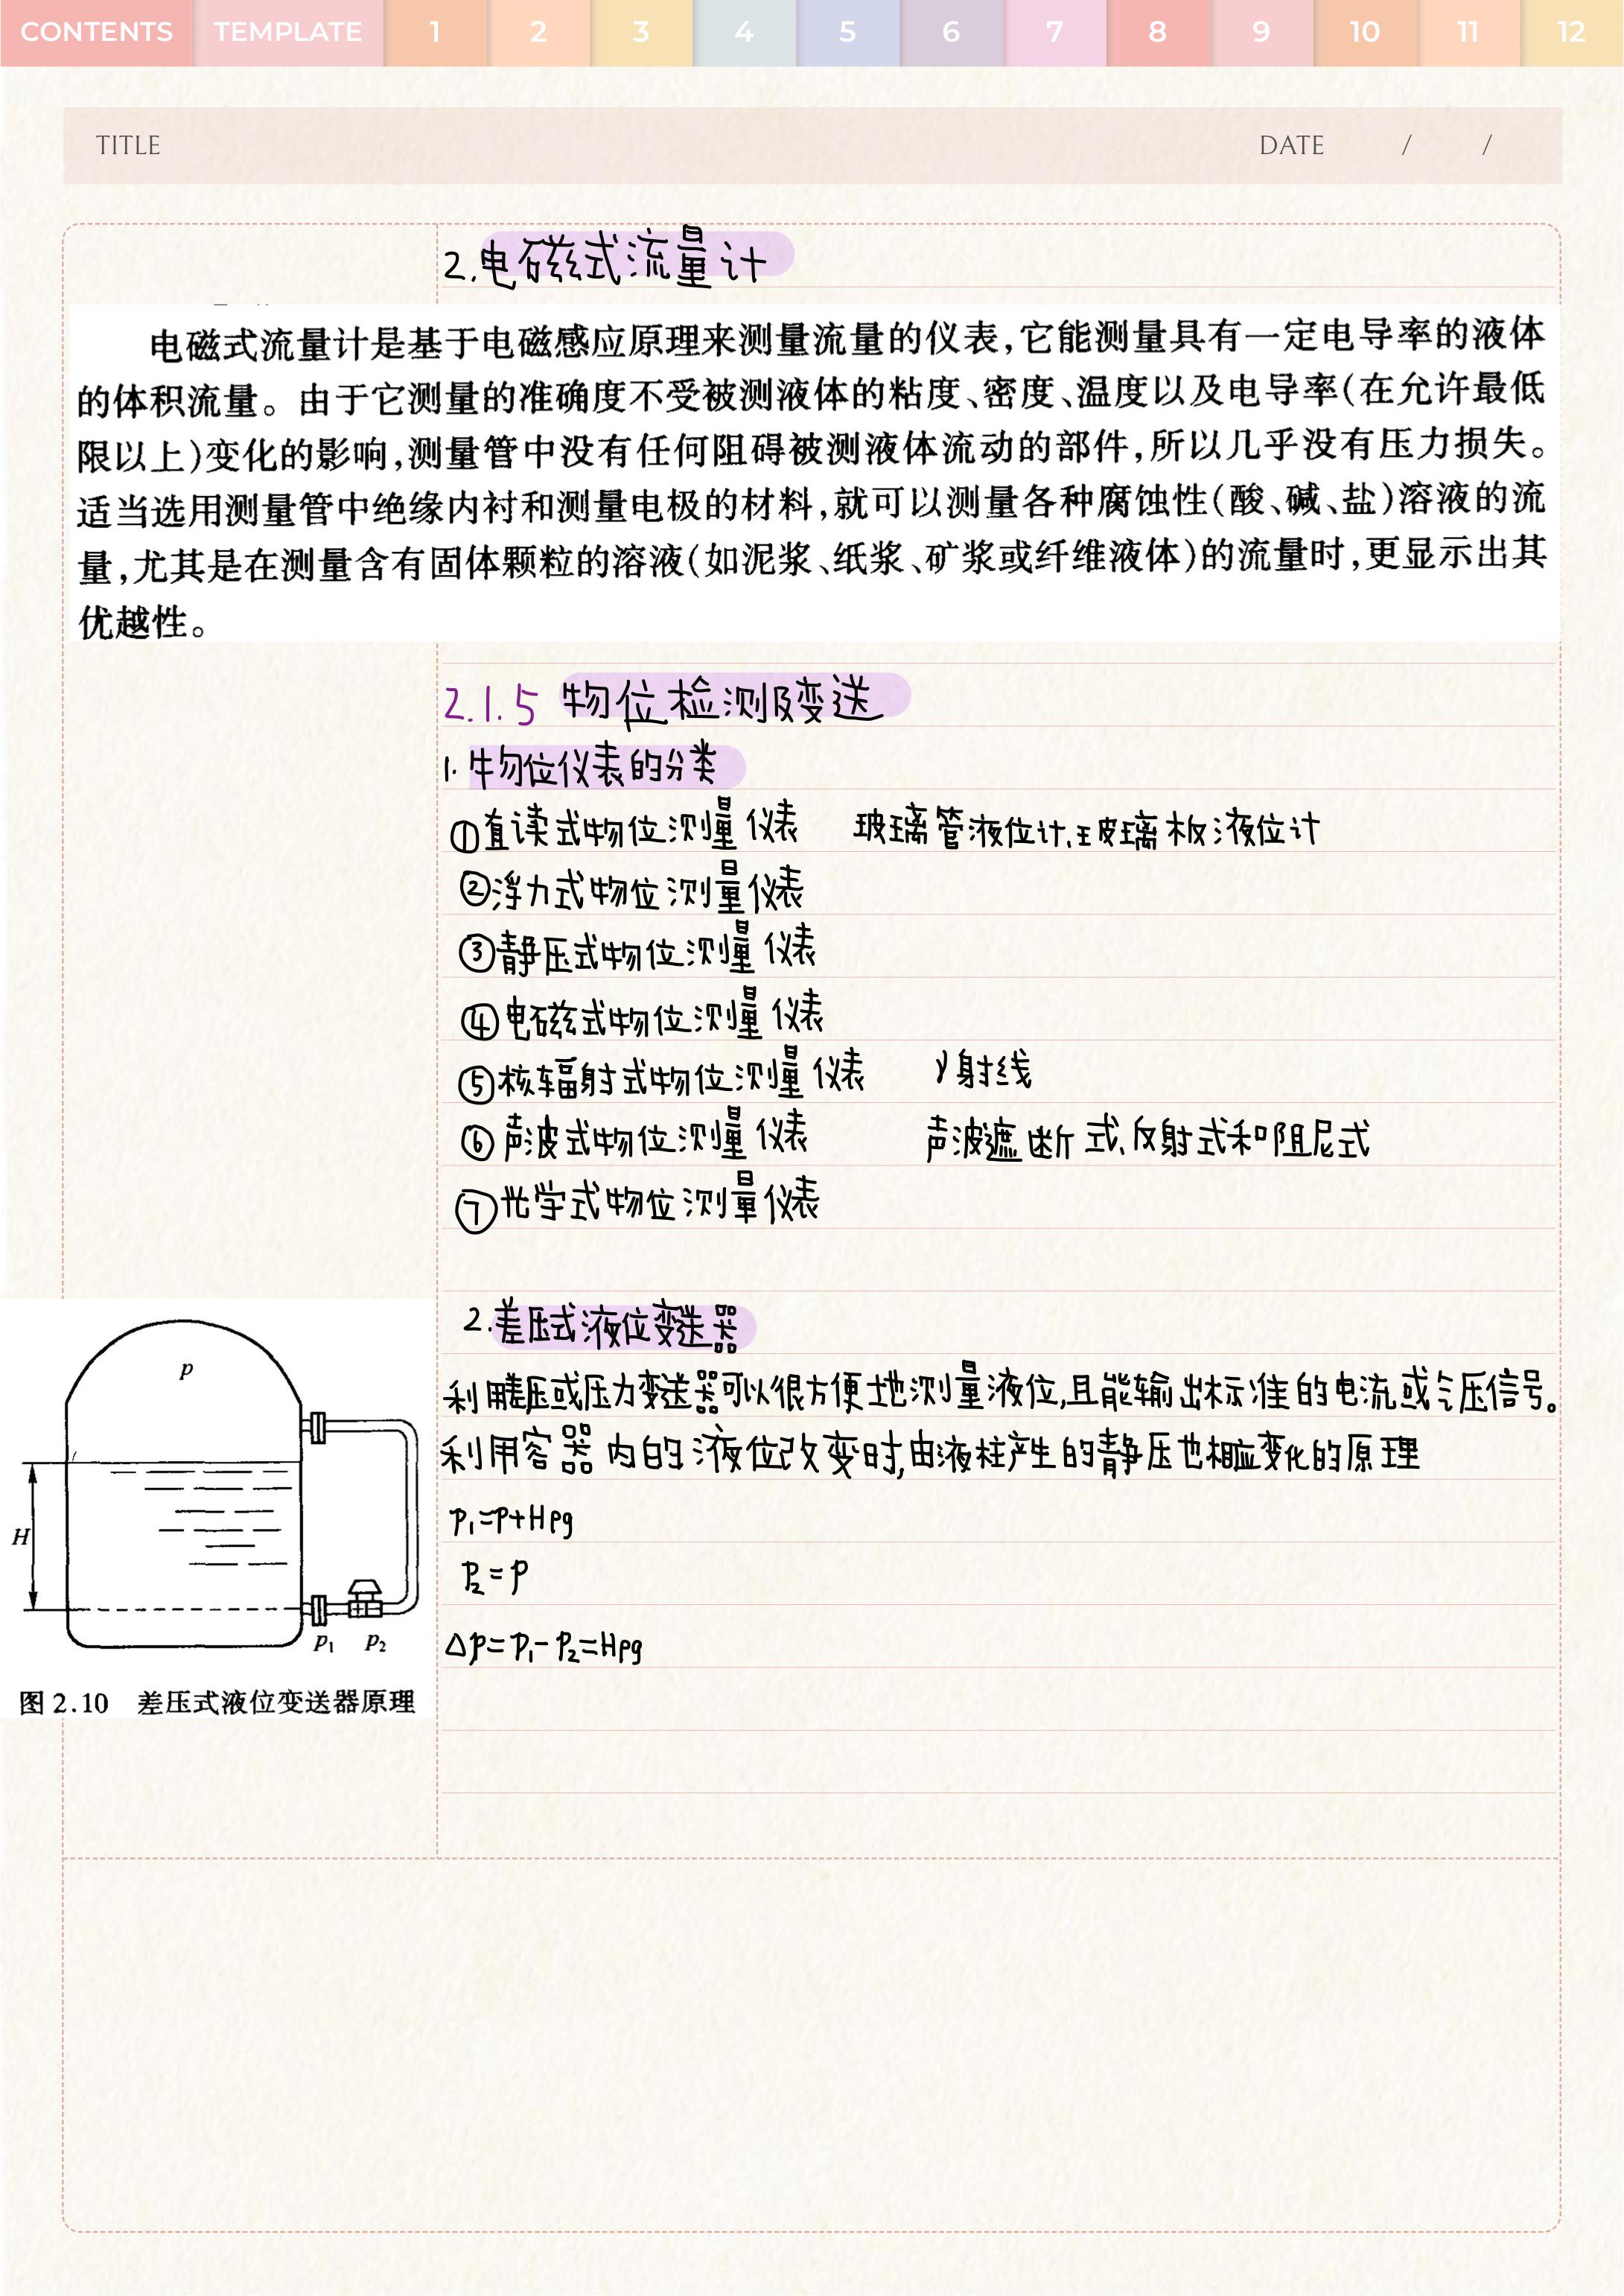 CONTENTS TEMPLATE 1 2 3 4 5 6 7 8 9 10 11 12
TITLE DATE / /
2.电磁式流量计
电磁式流量计是基于电磁感应原理来测量流量的仪表,它能测量具有一定电导率的液体
的体积流量。由于它测量的准确度不受被测液体的粘度、密度、温度以及电导率(在允许最低
限以上)变化的影响,测量管中没有任何阻碍被测液体流动的部件,所以几乎没有压力损失。
适当选用测量管中绝缘内衬和测量电极的材料,就可以测量各种腐蚀性(酸、碱、盐)溶液的流
量,尤其是在测量含有固体颗粒的溶液(如泥浆、纸浆、矿浆或纤维液体)的流量时,更显示出其
优越性。
2.1.5 物位检测及变送
1.物位仪表的分类
①直读式物位测量仪表 玻璃管液位计、玻璃板液位计
②浮力式物位测量仪表
③静压式物位测量仪表
④电磁式物位测量仪表
⑤核辐射式物位测量仪表 γ射线
⑥声波式物位测量仪表 声波遮断式、反射式和阻尼式
⑦光学式物位测量仪表
2.差压式液位变送器
利用差压或压力变送器可以很方便地测量液位,且能输出标准的电流或气压信号。
利用容器内的液位改变时,由液柱产生的静压也相应变化的原理
P₁=P+Hρg
P₂=P
ΔP=P₁-P₂=Hρg
p
H
p₁ p₂
图 2.10 差压式液位变送器原理